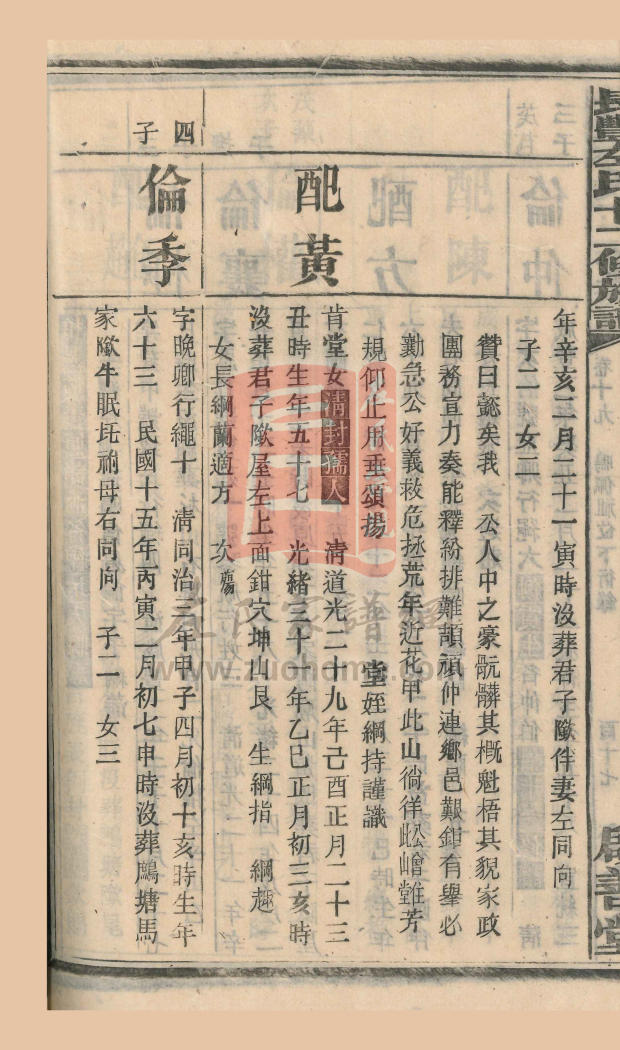 長豐左氏十二修族譜
卷十九
百十七
年辛亥二月二十一寅時沒葬君子隞伴妻左同向
子二 女二
贊曰懿矣我 公人中之豪骯髒其概魁梧其貌家政
團務宣力奏能釋紛排難頡頏仲連鄉邑艱鉅有舉必
勷急公好義救危拯荒年近花甲此山徜徉 嶒 芳
規仰止用垂頌揚 堂姪綱持謹識
配黃
肯堂女清封孺人 清道光二十九年己酉正月二十三
丑時生年五十七 光緒三十一年乙巳正月初三亥時
沒葬君子隞屋左上面鉗穴坤山艮 生綱指 綱趣
女長綱蘭適方 次殤
四子
倫季
字晚卿行繩十 清同治三年甲子四月初十亥時生年
六十三 民國十五年丙寅二月初七申時沒葬鷓塘馬
家隞牛眠 祔母右同向 子二 女三
左氏家譜網
www.zuohome.com